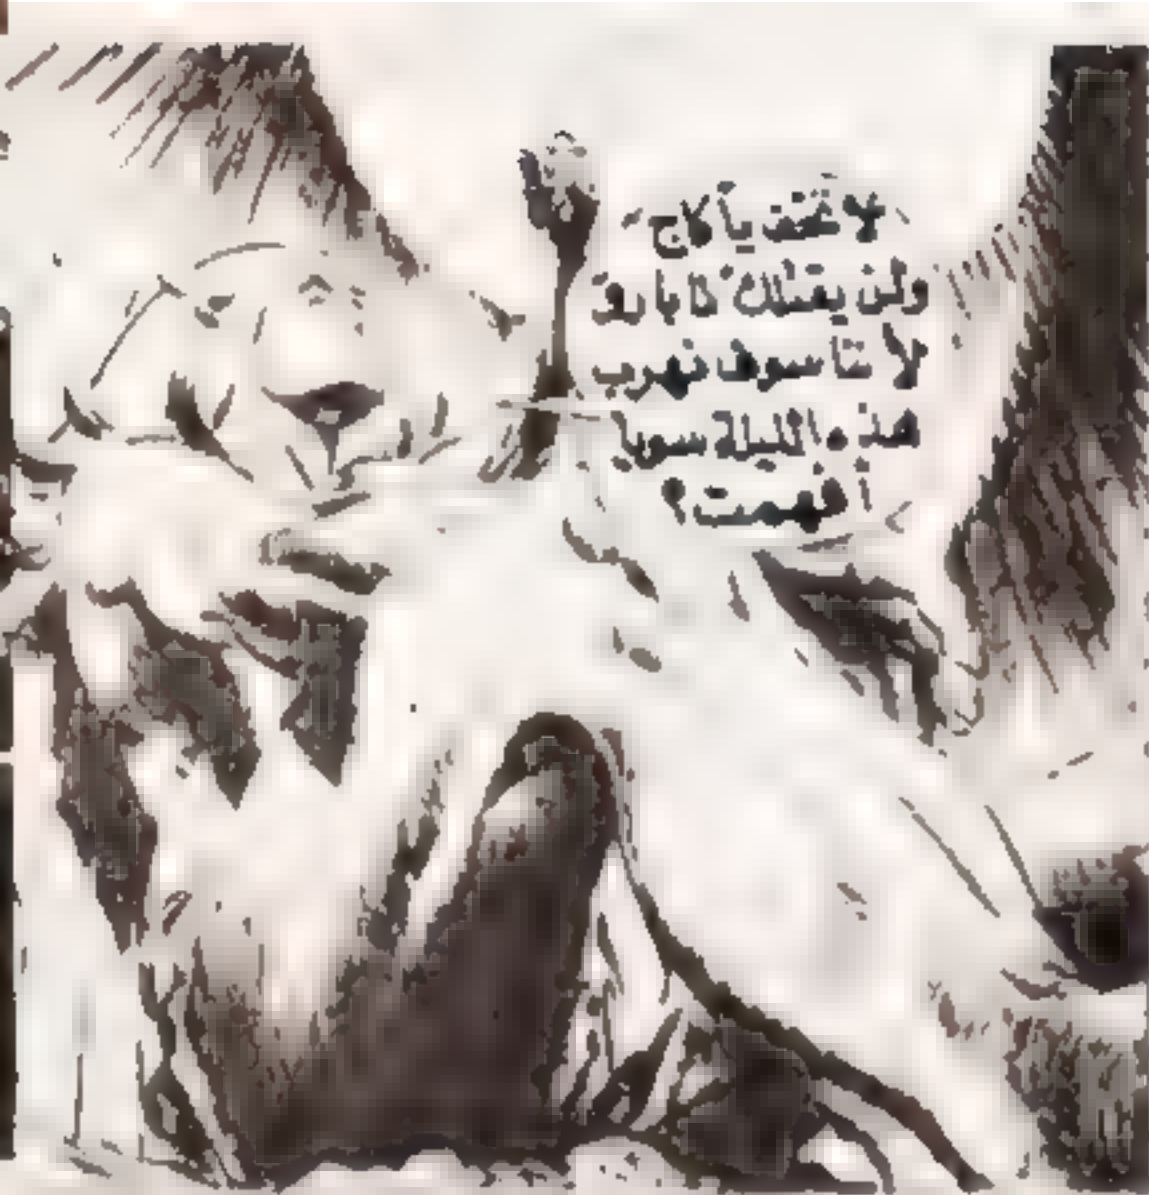 لا تخف يا كاج
ولن يقتلك كا بارو
لأ ننا سوف نهرب
هذه الليلة سويا
أفهمت؟